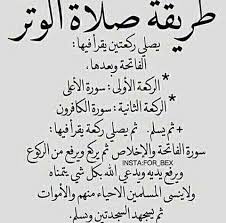 طريقة صلاة الوتر
يصلي ركعتين يقرأ فيها:
الفاتحة وبعدها.
*الركعة الأولى: سورة الأعلى
*الركعة الثانية: سورة الكافرون
+ ثم يسلم. ثم يصلي ركعة يقرأ فيها:
سورة الفاتحة والإخلاص ثم يركع ويرفع من الركوع
INSTA:FOR_BEX
ويرفع يديه ويدعي الله بكل شي يتمناه
ولاينسى المسلمين الاحياء منهم والأموات
ثم يسجد السجدتين ويسلم.